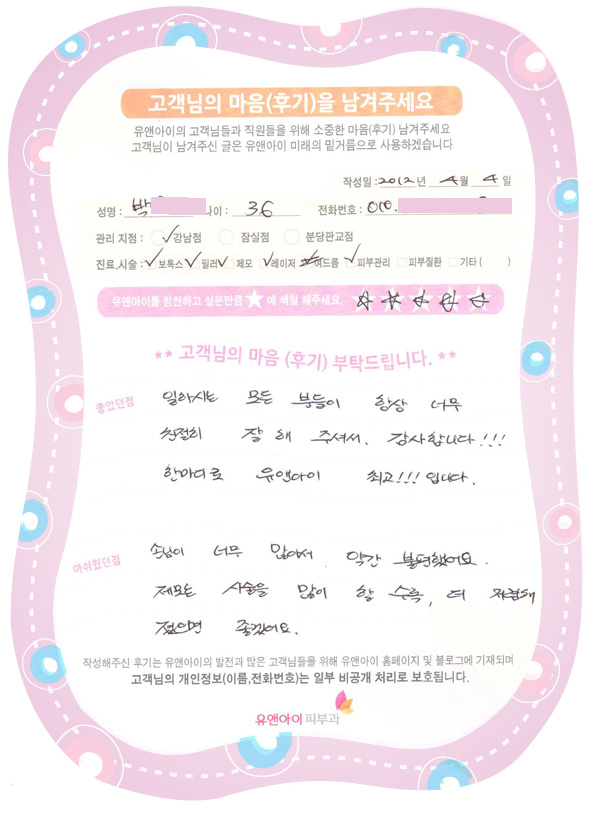 고객님의 마음(후기)을 남겨주세요
유앤아이의 고객님들과 직원들을 위해 소중한 마음(후기) 남겨주세요
고객님이 남겨주신 글은 유앤아이 미래의 밑거름으로 사용하겠습니다
작성일 : 2012 년 4 월 4 일
성명 : 박 나이 : 36 전화번호 : 010.
관리 지점 : 강남점 잠실점 분당판교점
진료,시술 : 보톡스 필러 제모 레이저 여드름 피부관리 피부질환 기타 ( )
유앤아이를 칭찬하고 싶은만큼 ★ 에 색칠 해주세요.
** 고객님의 마음 (후기) 부탁드립니다. **
좋았던점 일하시는 모든 분들이 항상 너무
친절히 잘 해 주셔서. 감사합니다!!!
한마디로 유앤아이 최고!!! 입니다.
아쉬웠던점 손님이 너무 많아서 약간 불편했어요.
제모는 시술을 많이 할 수록, 더 저렴해
졌으면 좋겠어요.
작성해주신 후기는 유앤아이의 발전과 많은 고객님들을 위해 유앤아이 홈페이지 및 블로그에 기재되며
고객님의 개인정보(이름,전화번호)는 일부 비공개 처리로 보호됩니다.
유앤아이 피부과